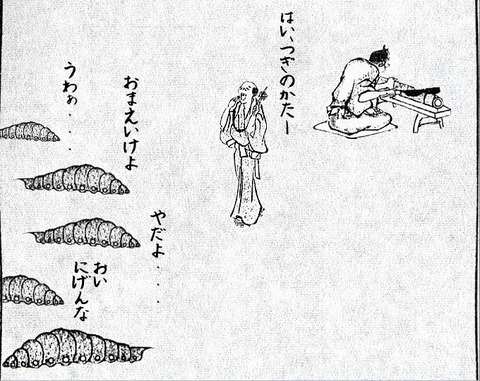 はい、つぎのかたー
おまえいけよ
うわぁ・・・
やだよ・・・
おい
にげんな